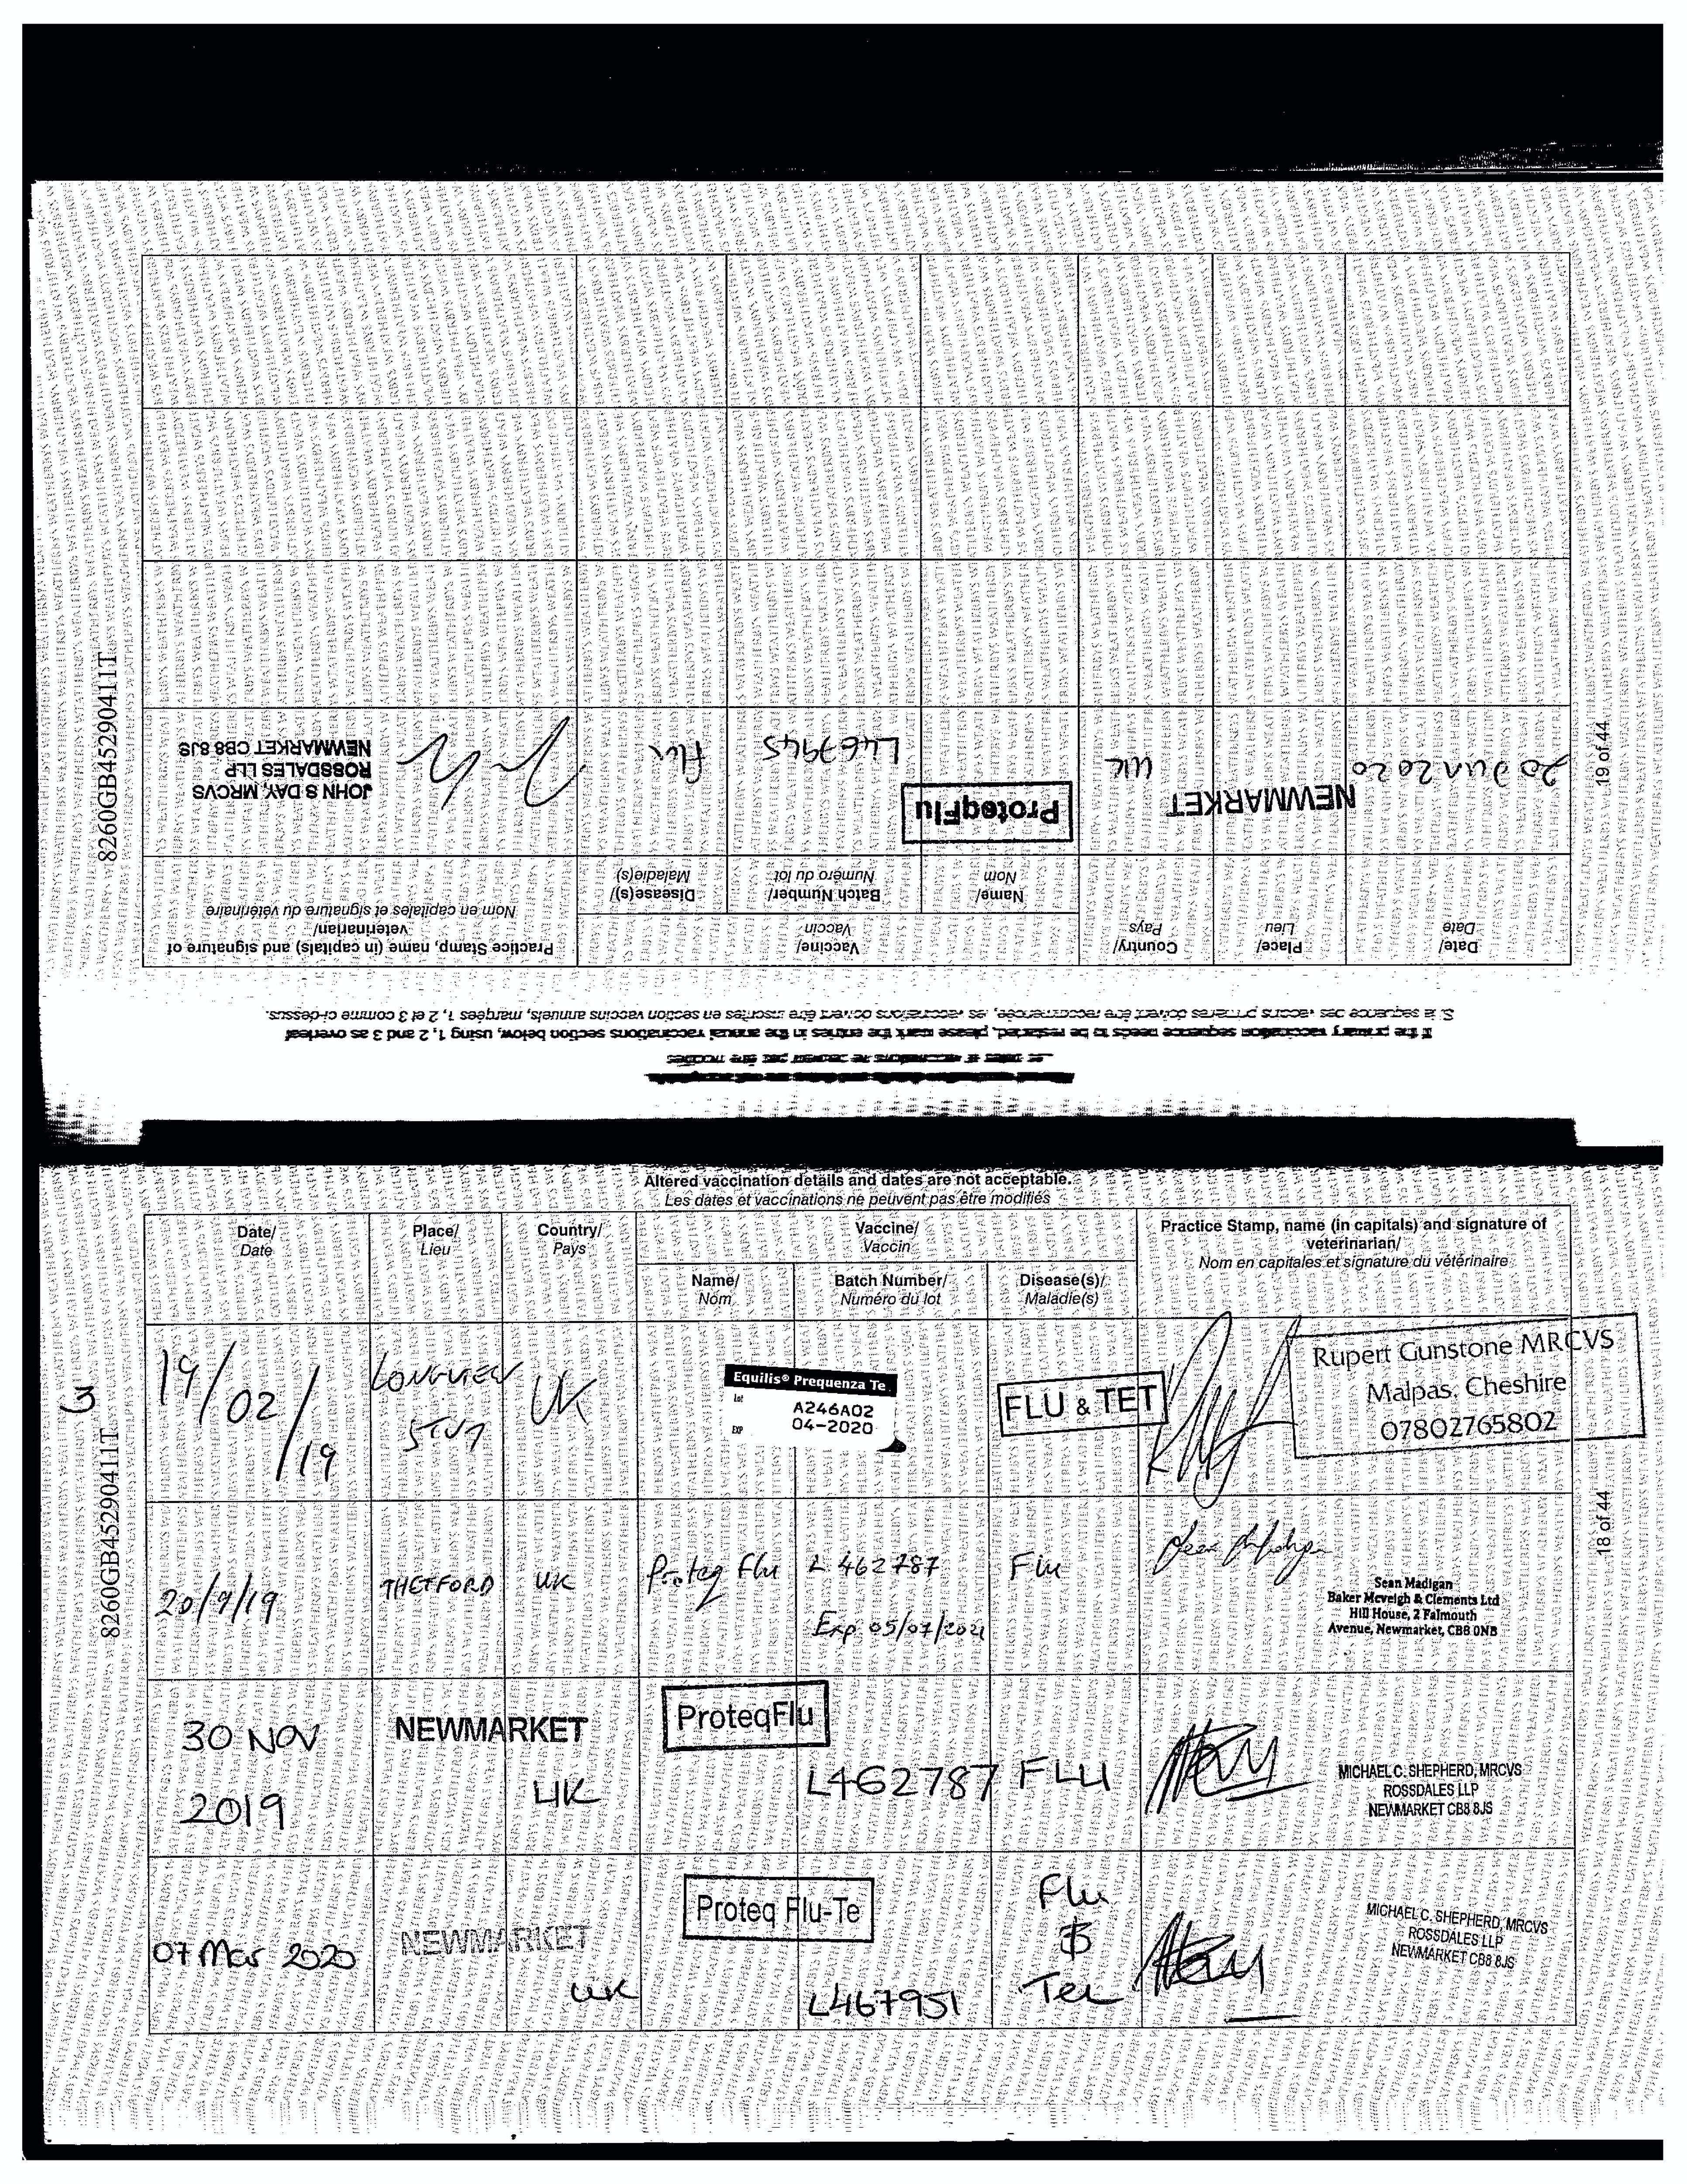 8260GB45290411T
19 of 44
If the primary vaccination sequence needs to be restarted, please mark the entries in the annual vaccinations section below, using 1, 2 and 3 as overleaf
Date/
Date
Place/
Lieu
Country/
Pays
Vaccine/
Vaccin
Name/
Nom
Batch Number/
Numéro du lot
Disease(s)/
Maladie(s)
Practice Stamp, name (in capitals) and signature of
veterinarian/
Nom en capitales et signature du vétérinaire
20 Jun 2020
NEWMARKET
UK
ProteqFlu
L467945
Flu
JOHN S DAY, MRCVS
ROSSDALES LLP
NEWMARKET CB8 8JS
Altered vaccination details and dates are not acceptable.
Les dates et vaccinations ne peuvent pas être modifiés
Date/
Date
Place/
Lieu
Country/
Pays
Vaccine/
Vaccin
Name/
Nom
Batch Number/
Numéro du lot
Disease(s)/
Maladie(s)
Practice Stamp, name (in capitals) and signature of
veterinarian/
Nom en capitales et signature du vétérinaire
3
19/02/19
LONGVIEW
STUD
UK
Equilis® Prequenza Te
Lot
A246A02
EXP
04-2020
FLU & TET
Rupert Gunstone MRCVS
Malpas, Cheshire
07802765802
8260GB45290411T
18 of 44
20/9/19
THETFORD
UK
Proteq Flu
L 462787
Exp 05/07/2021
Flu
Sean Madigan
Baker Mcveigh & Clements Ltd
Hill House, 2 Falmouth
Avenue, Newmarket, CB8 0NB
30 NOV
2019
NEWMARKET
UK
ProteqFlu
L462787
FLU
MICHAEL C. SHEPHERD, MRCVS
ROSSDALES LLP
NEWMARKET CB8 8JS
07 Mar 2020
NEWMARKET
UK
Proteq Flu-Te
L467951
Flu
&
Tet
MICHAEL C. SHEPHERD, MRCVS
ROSSDALES LLP
NEWMARKET CB8 8JS